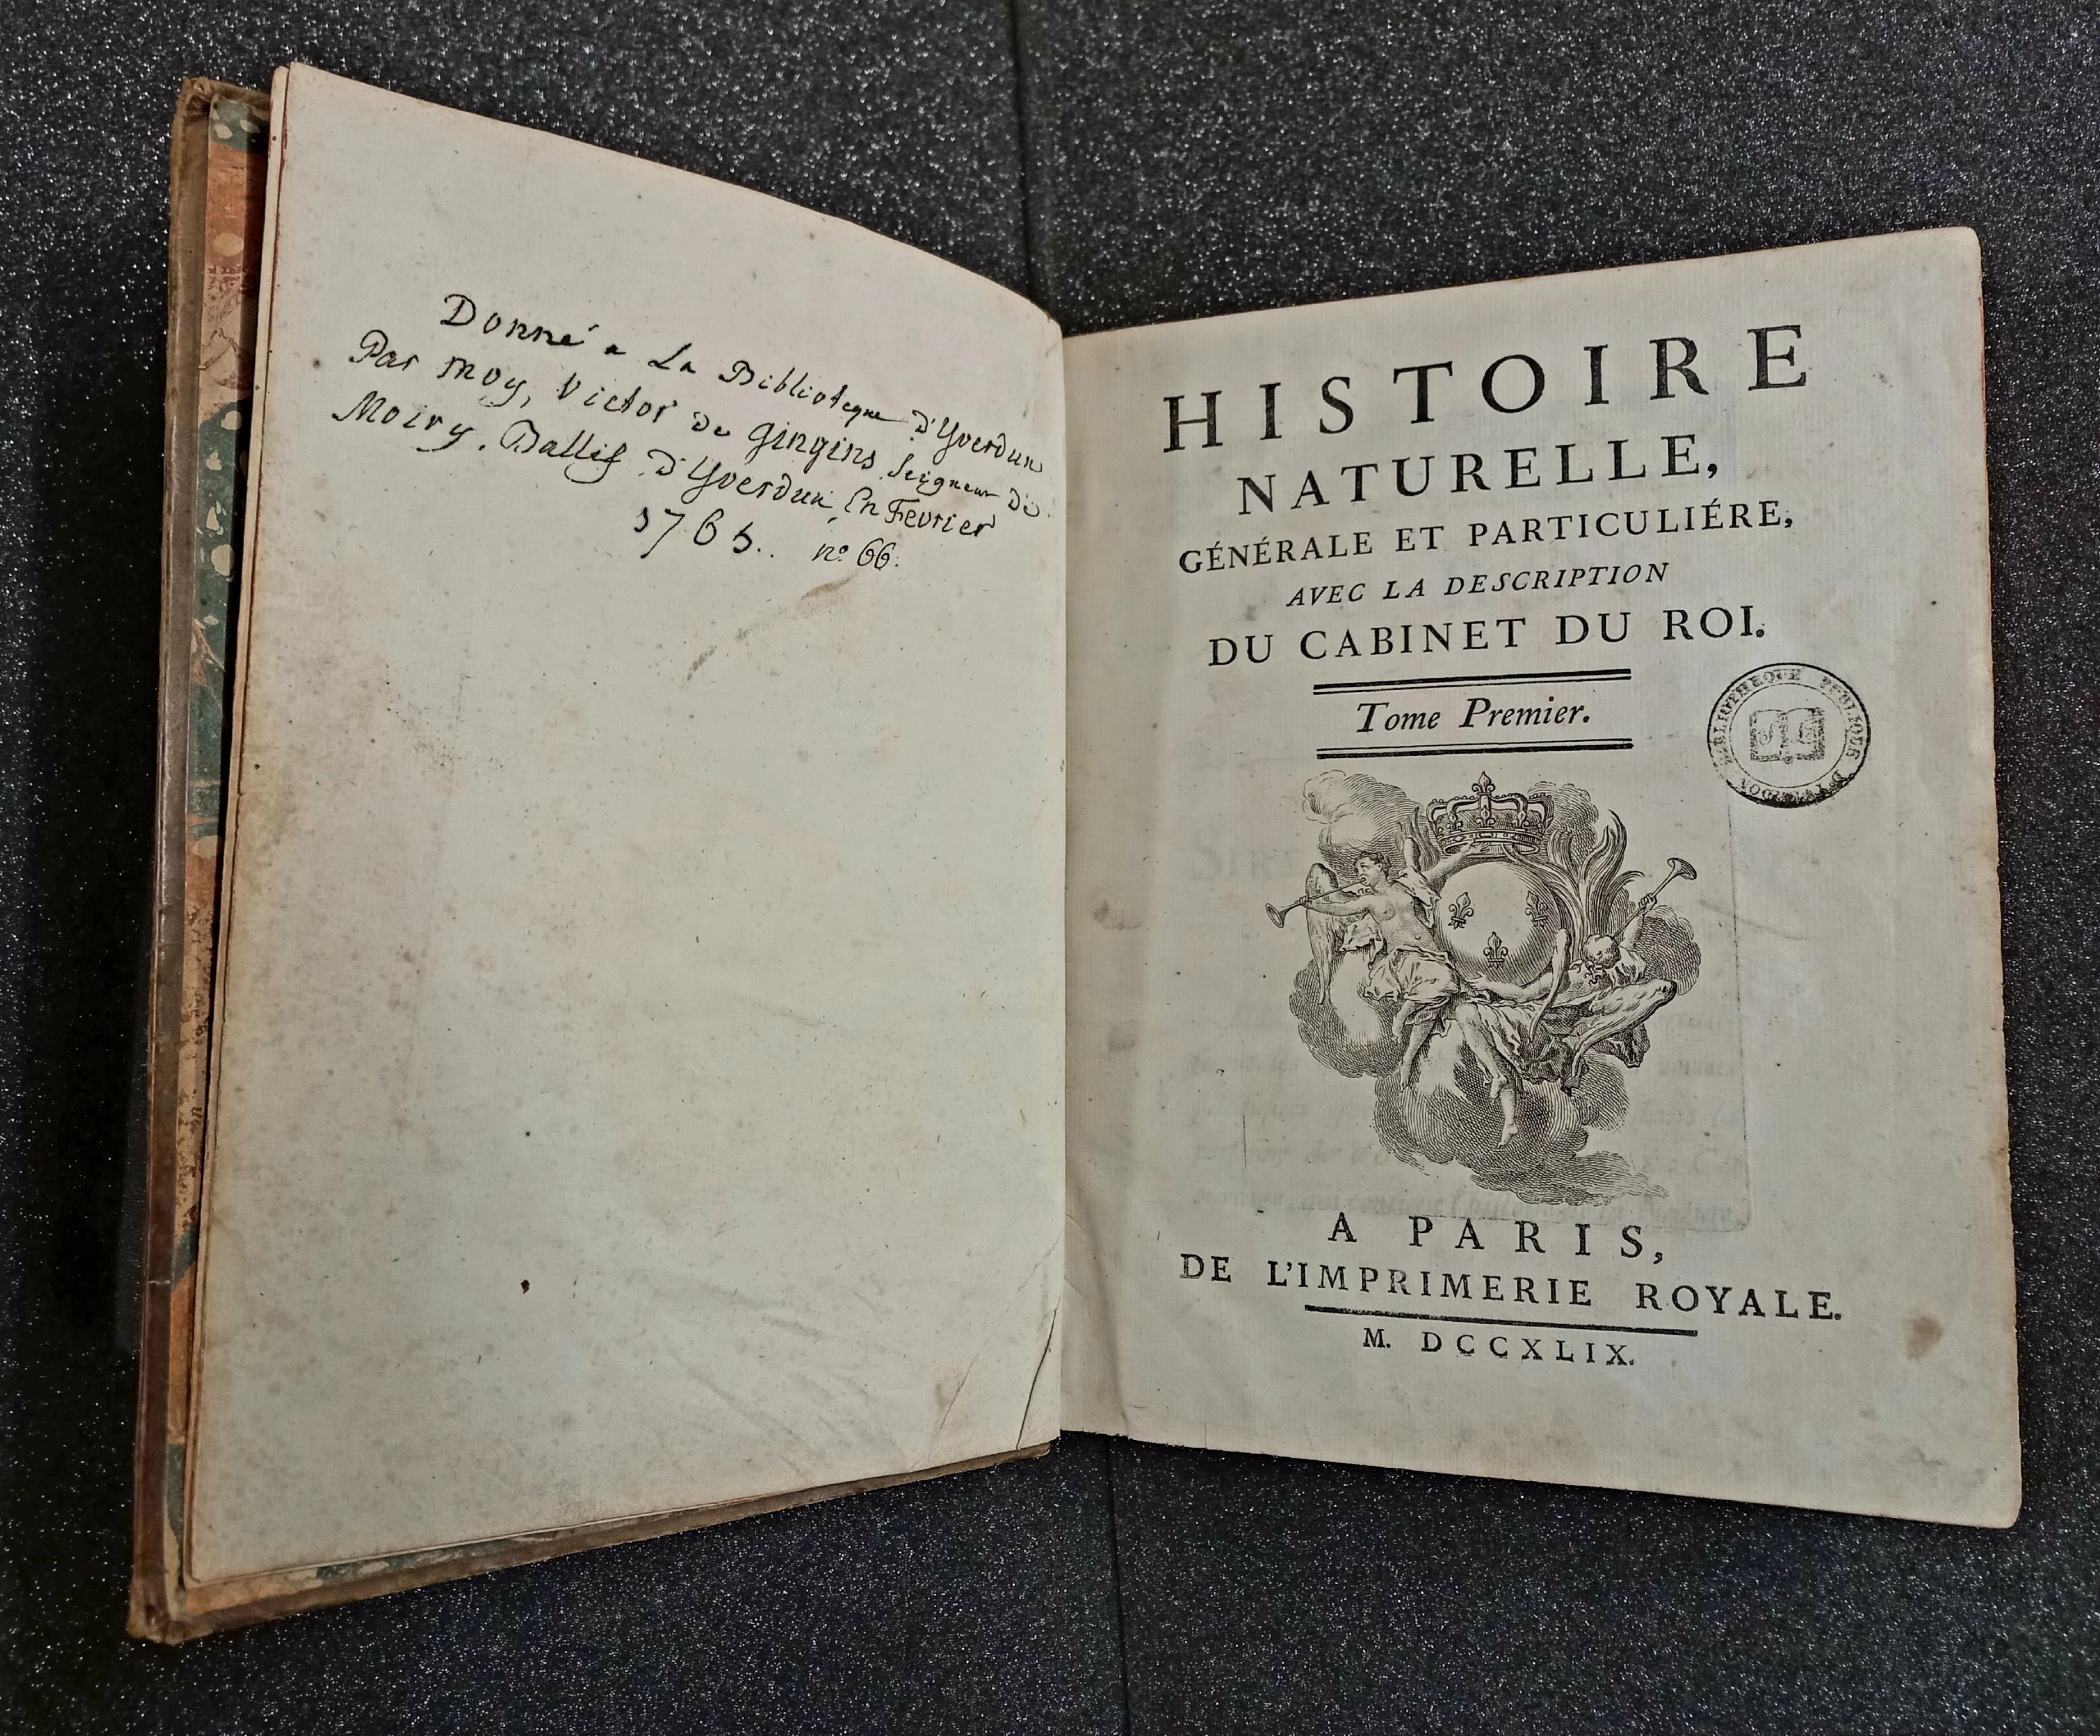 Donné a La Biblioteque d'Yverdun
Par moy, Victor de Gingins Seigneur de
Moiry. Ballif d'Yverdun, En Fevrier
1765. n.º 66.
HISTOIRE
NATURELLE,
GÉNÉRALE ET PARTICULIÉRE,
AVEC LA DESCRIPTION
DU CABINET DU ROI.
Tome Premier.
BIBLIOTHEQUE PUBLIQUE D'YVERDON
A PARIS,
DE L'IMPRIMERIE ROYALE.
M. DCCXLIX.